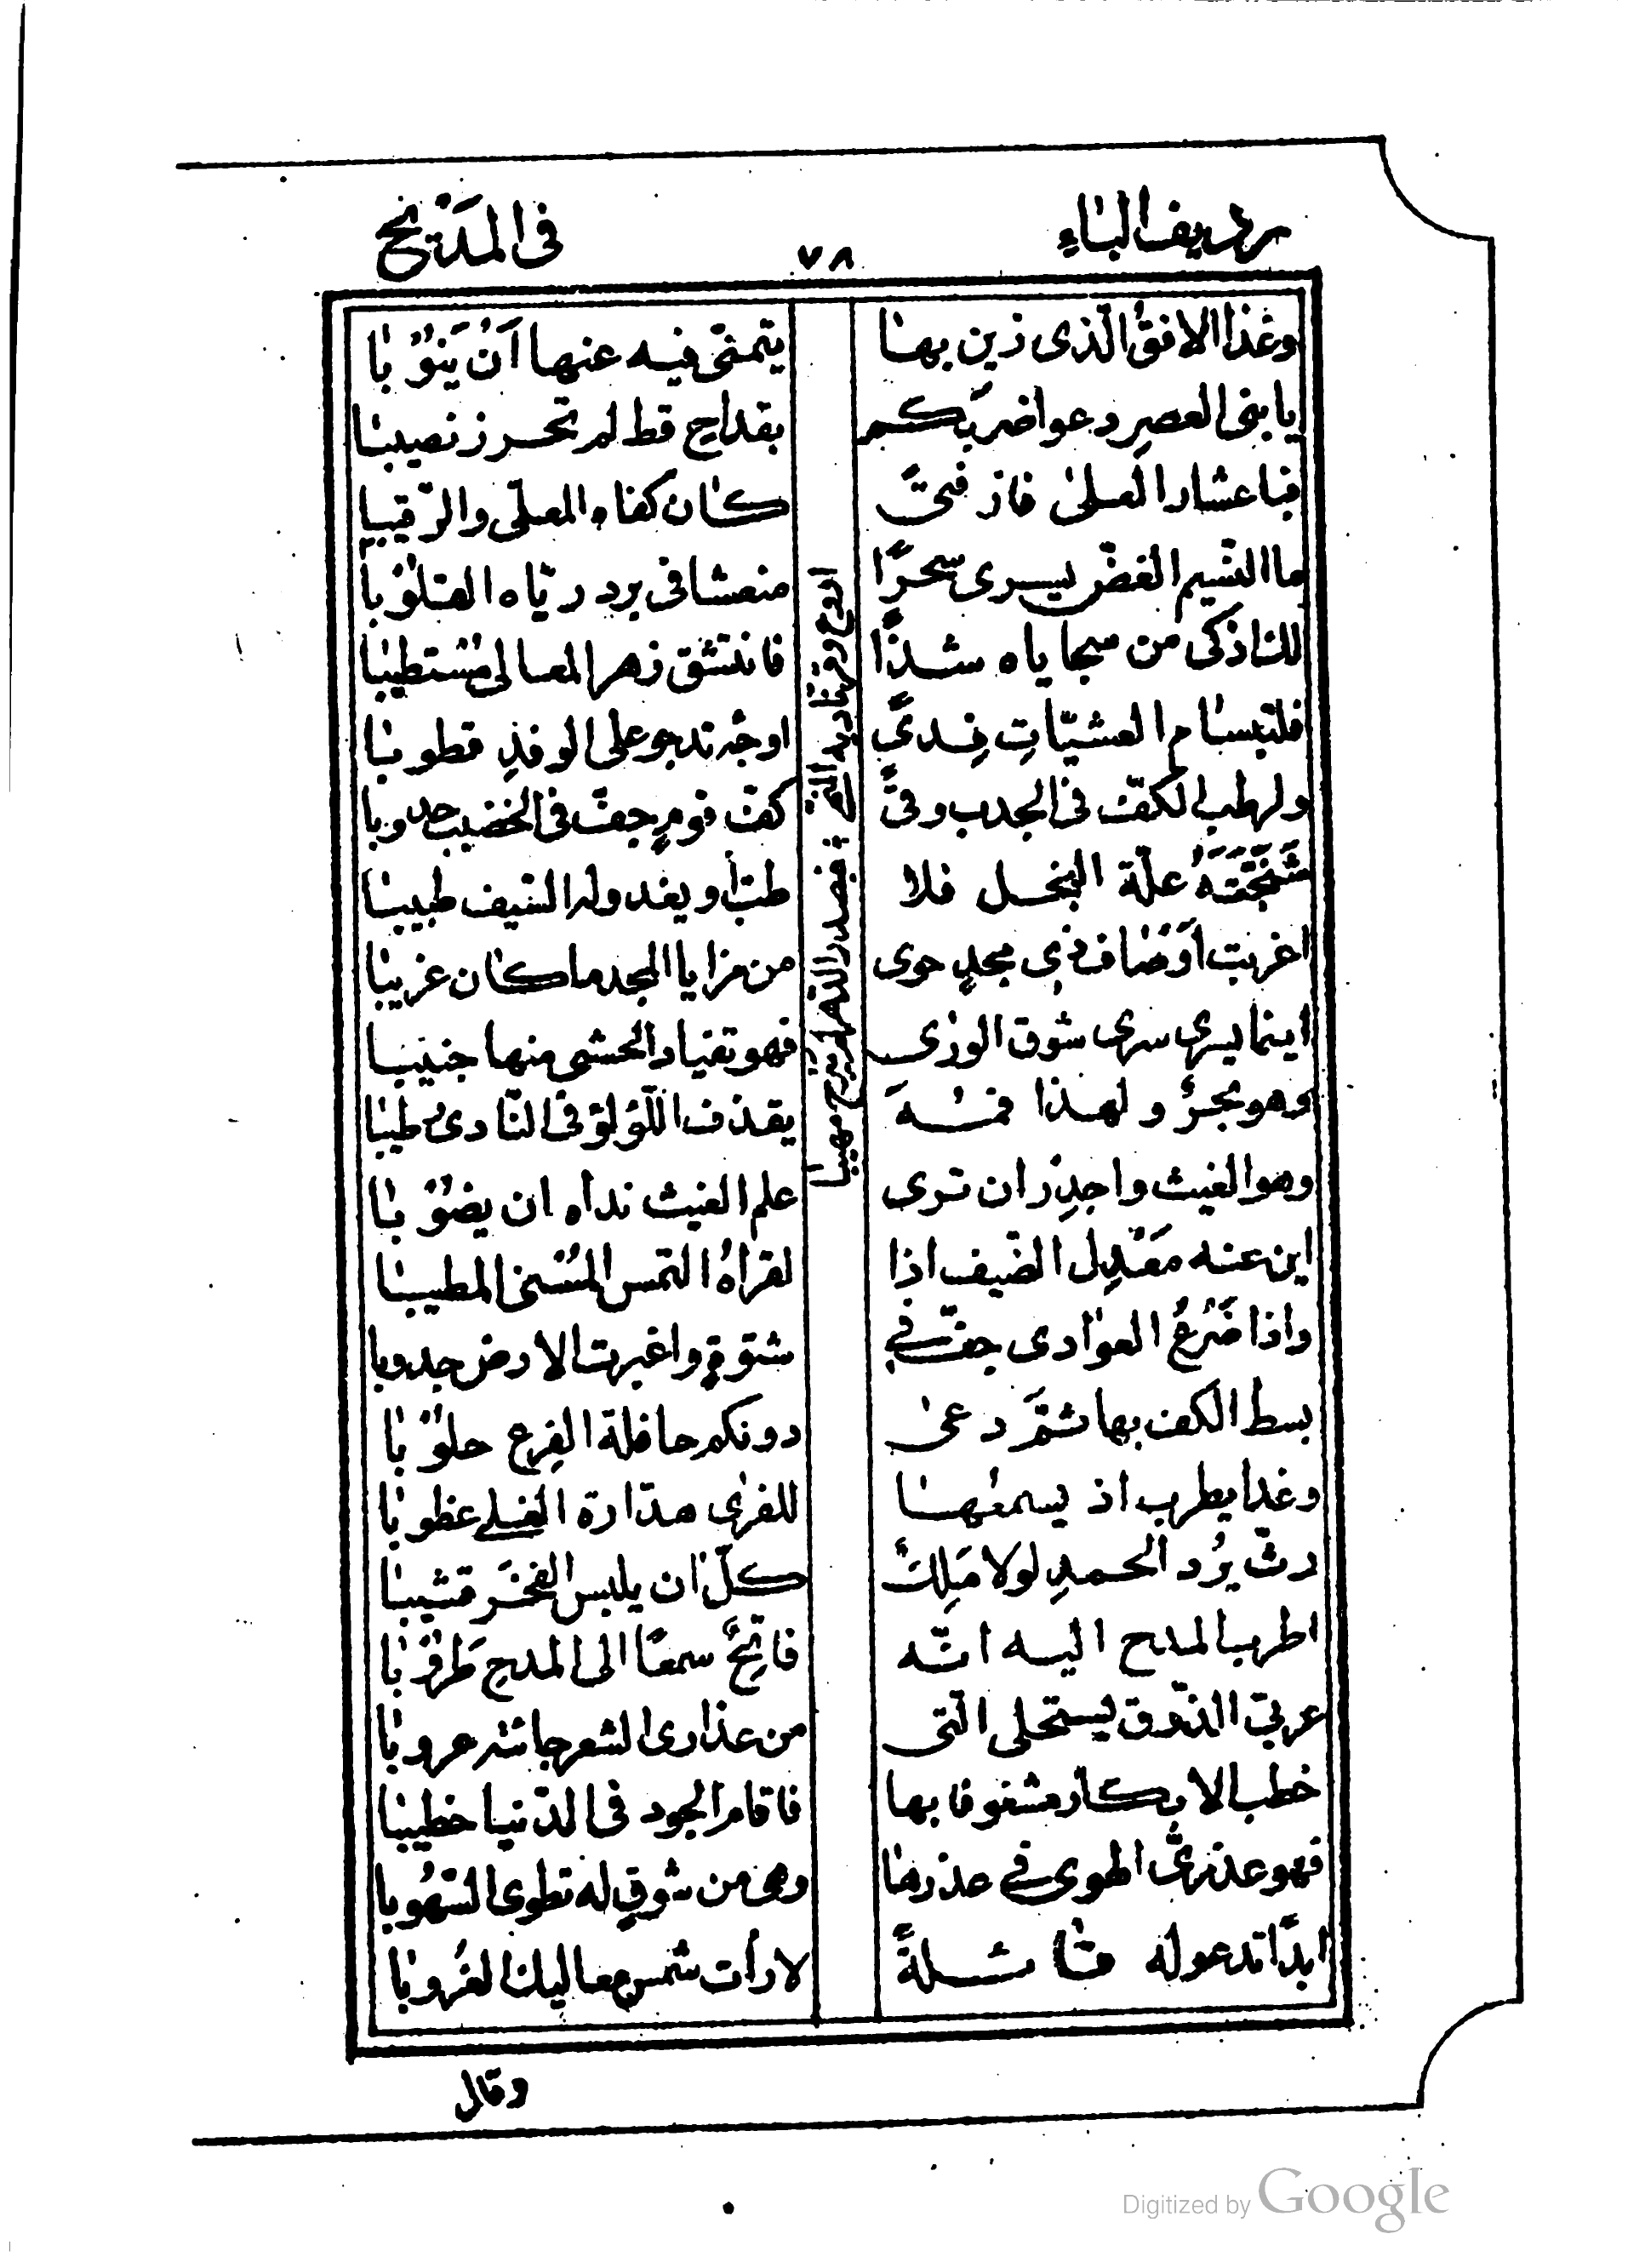 رديف الباء ٧٨ في المديح
وغذا الافق الّذى زين بها يتمنّى فيه عنها اَن يَنُوبا
يا بنى العصرِ دعوا ضربَكم بقداحٍ قط لم تحرز نصيبا
فباعشار العلىٰ فاز فتىً كان كفاه المعلّى والرّقيبا
ما النّسيم الغضّ يسرى سحرًا منعشا فى برد ريّاه القلوُبا
لك اذكى من سجاياه شذًا فانتشق زهر المعالى مُستطيبا
فلتبسام العشيّاتِ نِدىً اوجُه تدجو على الوفدِ قطوبا
ولرطب الكفّ فى الجدب وفىً كفّ قومٍ جفّ فى الخصب جدوبا
شَنَّجَتهُ علّة البخل فلا طبّ أو يغدو له السّيف طبيبا
اغربت اَوْصاف ذى مجدٍ حوى من مزايا المجد ما كان غريبا
اينما يسرى سرى شوق الورٰى فهو تقتاد الحشى منها جنيبا
وهو بحرٌ ولهذا فمُه يقذف اللّؤلؤ فى النّادى طيبا
وهو الغيث واجدِر ان ترى علم الغيث نداه ان يصُوبا
اين عنه مَعْدِل الضّيف اذا لقراهُ التمس المُسنى المطيبا
واذا ضَرعُ الغوادى جفّ في شتوةٍ واغبرت الارض جدوبا
بسط الكف بها ثمَّ دعىٰ دونكم حافلة الضرع حلوُبا
وغدا يطرب اذ يسمعُها للقرى هدّارة الغلي غظوبا
رثّ بُرد الحمدِ لولا مَلِكٌ كلّ ان يلبس الفخَر قشيبا
اطرب المدح اليه انّه فاتحٌ سمعًا الى المدحِ طَرُوُبا
عربىّ الذّوق يستحلى الّتى من عذارى الشعر جائته عروبا
خطب الابكار مشغوفا بها فاقام الجود فى الدّنيا خطيبا
فهو عذرىّ الهوى في عذرها وهى من شوقٍ له تطوى السّهُوبا
ابدًا تدعو له قائلةً لا رأت شمس معاليك الغُروبا
اروع وقر ناديه النهى ؛ فصدر الدّهر يرتجّ مهيبا
وقال
Digitized by Google